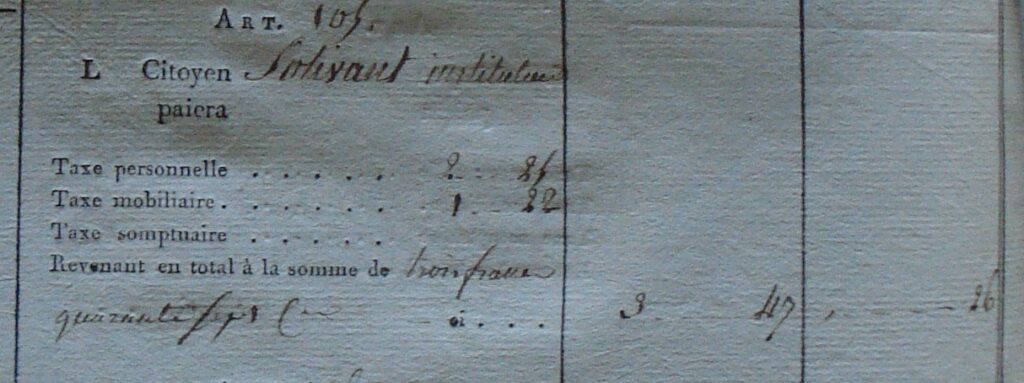 ART. 105.
L Citoyen Solivant instituteur
paiera
Taxe personnelle . . . . . 2 25
Taxe mobiliaire . . . . . . 1 22
Taxe somptuaire . . . . .
Revenant en total à la somme de trois francs
quarante sept Cen ci . . . 3 47 , 26